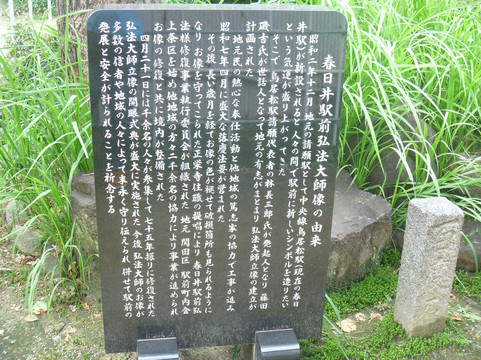 春日井駅前弘法大師像の由来
昭和二年十二月 地元の請願駅として中央線鳥居松駅(現在の春日
井駅)が新設されると人々の間で 駅前に新しいシンボルを造りたい
という気運が盛り上がってきた
そこで 鳥居松駅請願代表者の林長三郎氏が発起人となり 藤田
磯吉氏が世話人となって地元の有志がまとまり 弘法大師立像の建立が
計画された
地元民の熱心な奉仕活動と他地域の篤志家の協力で工事が進み
昭和七年四月に盛大な落慶法要が営まれた
その後 長い歳月を経てお像の色が褪せ破損箇所も見られるように
なり お像を守ってこられた正栄寺住職の提唱により 春日井駅前弘
法様修復事業執行委員会が組織された 地元 関田区 駅前町内会
上条区を始め他地域の方々二千余名の協力により事業が進められ
お像の修復と共に境内が整備された
四月二十一日には千余名の人々が参集して七十五年振りに修復された
弘法大師立像の開眼大祭典が盛大に実施された 今後 弘法大師のお像が
多数の信者や地域の人々によって末永く守り伝えられ 併せて駅前の
発展と安全が計られることを祈念する